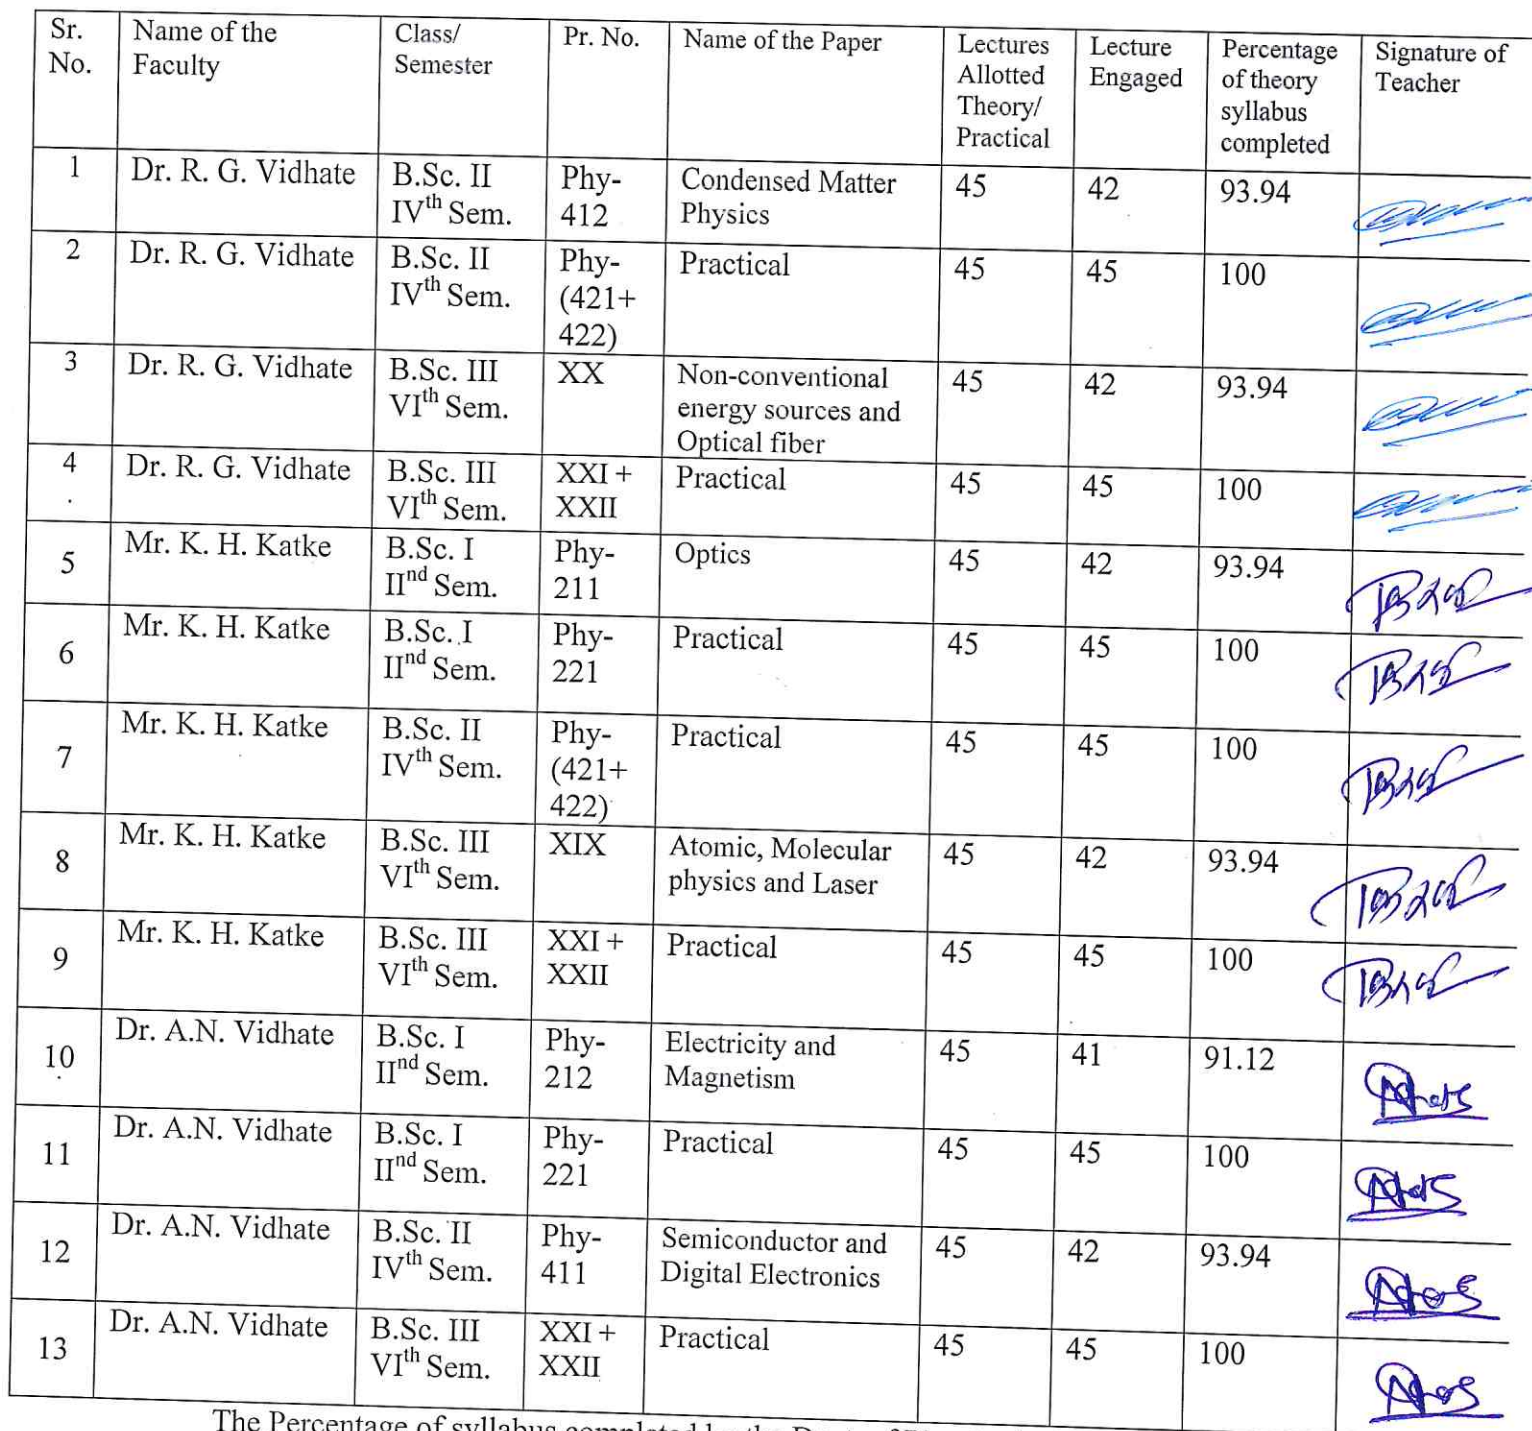 Sr. No. | Name of the Faculty | Class/ Semester | Pr. No. | Name of the Paper | Lectures Allotted Theory/ Practical | Lecture Engaged | Percentage of theory syllabus completed | Signature of Teacher
1 | Dr. R. G. Vidhate | B.Sc. II IVth Sem. | Phy-412 | Condensed Matter Physics | 45 | 42 | 93.94
2 | Dr. R. G. Vidhate | B.Sc. II IVth Sem. | Phy-(421+ 422) | Practical | 45 | 45 | 100
3 | Dr. R. G. Vidhate | B.Sc. III VIth Sem. | XX | Non-conventional energy sources and Optical fiber | 45 | 42 | 93.94
4 | Dr. R. G. Vidhate | B.Sc. III VIth Sem. | XXI + XXII | Practical | 45 | 45 | 100
5 | Mr. K. H. Katke | B.Sc. I IInd Sem. | Phy-211 | Optics | 45 | 42 | 93.94
6 | Mr. K. H. Katke | B.Sc. I IInd Sem. | Phy-221 | Practical | 45 | 45 | 100
7 | Mr. K. H. Katke | B.Sc. II IVth Sem. | Phy-(421+ 422) | Practical | 45 | 45 | 100
8 | Mr. K. H. Katke | B.Sc. III VIth Sem. | XIX | Atomic, Molecular physics and Laser | 45 | 42 | 93.94
9 | Mr. K. H. Katke | B.Sc. III VIth Sem. | XXI + XXII | Practical | 45 | 45 | 100
10 | Dr. A.N. Vidhate | B.Sc. I IInd Sem. | Phy-212 | Electricity and Magnetism | 45 | 41 | 91.12
11 | Dr. A.N. Vidhate | B.Sc. I IInd Sem. | Phy-221 | Practical | 45 | 45 | 100
12 | Dr. A.N. Vidhate | B.Sc. II IVth Sem. | Phy-411 | Semiconductor and Digital Electronics | 45 | 42 | 93.94
13 | Dr. A.N. Vidhate | B.Sc. III VIth Sem. | XXI + XXII | Practical | 45 | 45 | 100
The Percentage of syllabus completed by the